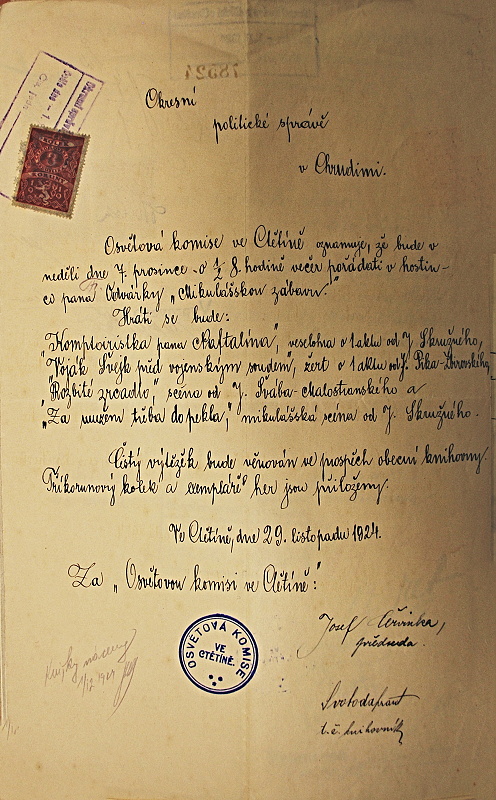 Okresní
politické správě
v Chrudimi.
Osvětová komise ve Ctětíně oznamuje, že bude v
neděli dne 7. prosince o ½ 8. hodině večer pořádati v hostin-
ci pana Odvárky „Mikulášskou zábavu."
Hráti se bude:
"Komptoiristka pana Naftalína", veselohra o 1 aktu od J. Skružného,
"Voják Švejk před vojenským soudem", žert o 1 aktu od
"Rozbité zrcadlo," scéna od J. Švába-Malostranského a
„Za mužem třeba do pekla," mikulášská scéna od J. Skružného.
Čistý výtěžek bude věnován ve prospěch obecní knihovny.
Tříkorunový kolek a exempláře her jsou přiloženy.
Ve Ctětíně, dne 29. listopadu 1924.
Za „Osvětovou komisi ve Ctětíně:"
Josef Červinka,
předseda.
OSVĚTOVÁ KOMISE
VE
CTĚTÍNĚ.
t. č. knihovník
78521